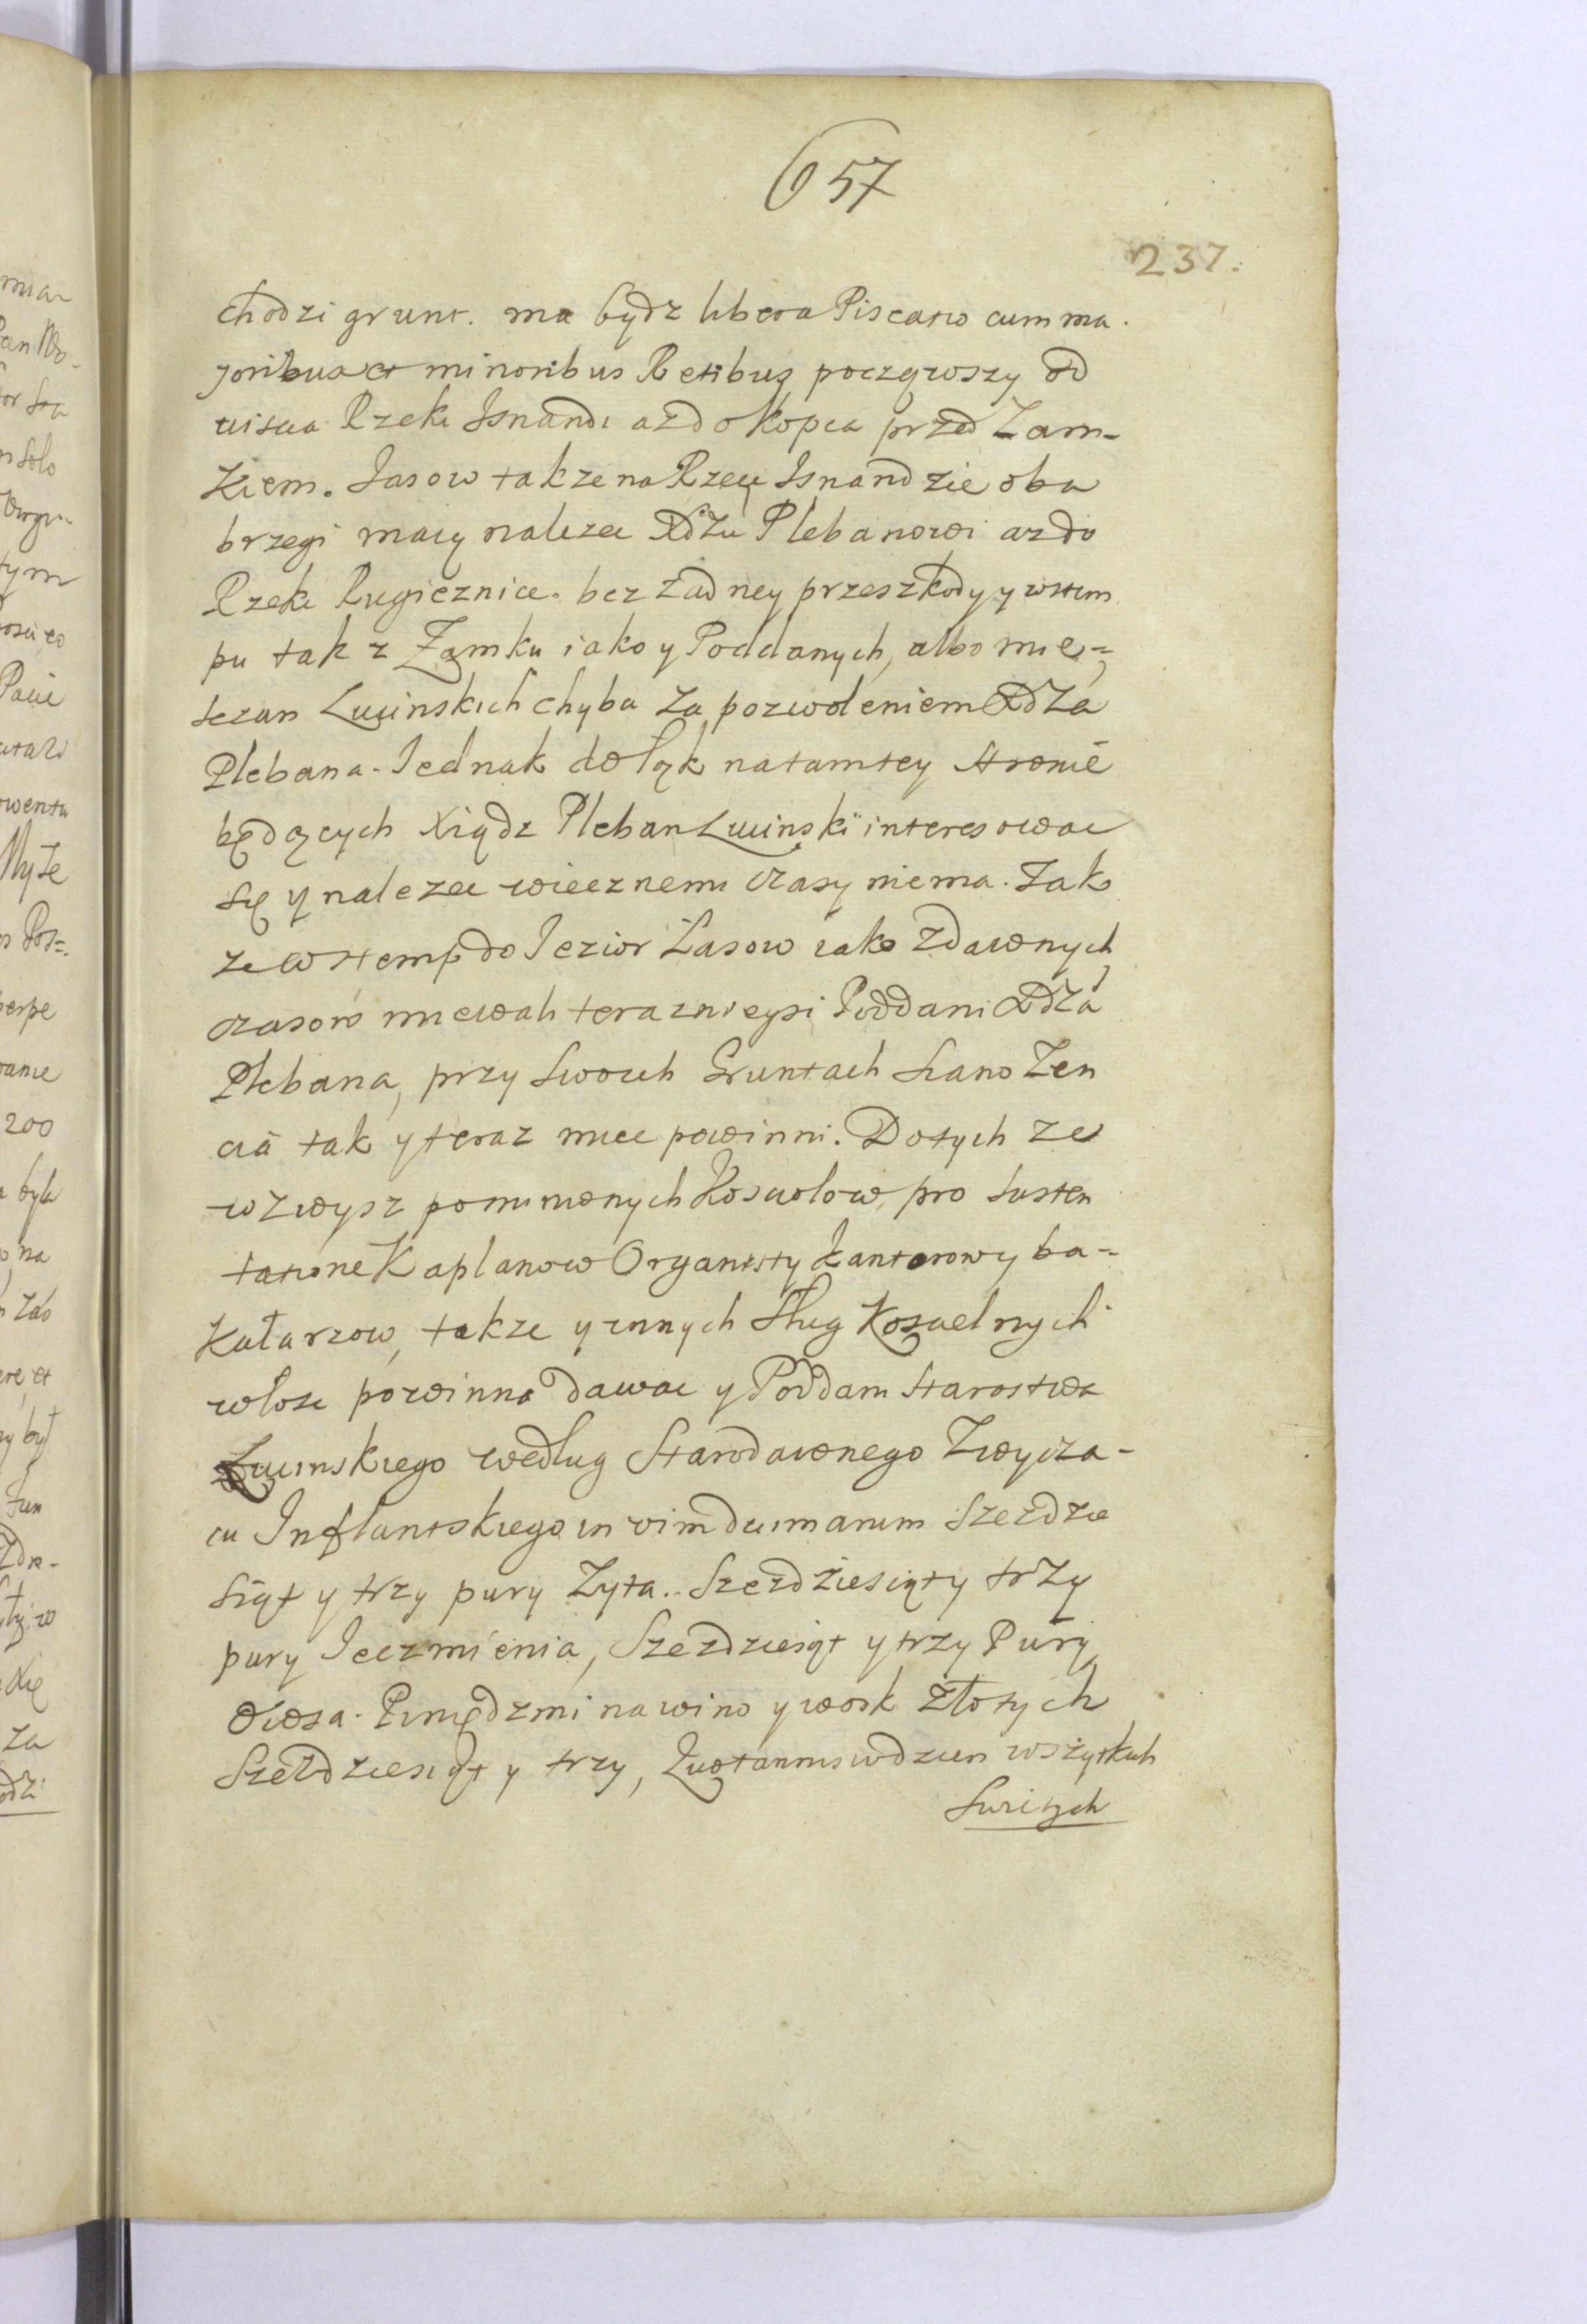 657
237.
chodzi grunt. ma bydz libera Piscatio cum ma-
joribus et minoribus Retibus począwszy od
uiscia Rzeki Isnandi azdo Kopca przed Zam-
kiem. Lasow takze na Rzece Isnandzie oba
brzegi maią nalezec Xdzu Plebanowi az do
Rzeki Rugicznice. bez zadney przeszkody y wstem
pu tak z Zamku iako y Poddanych, albo mie-
sczan Lucinskich chyba za pozwoleniem Xdza
Plebana. Jednak do łąk na tamtey stronie
będących Xiądz Pleban Lucinski interesowac
się y nalezec wiecznemi czasy niema. Tak
ze wstemp do Iezior Lasow iako z dawnych
czasow miewali teraznieysi Poddani Xdza
Plebana, przy swoich Gruntach Siano Zen
cia tak y teraz miec powinni. Do tych ze
wzwysz pomienionych Kosciolow, pro susten
tatione Kaplanow Organisty Kantorow y ba-
kałarzow, takze y innych Sług Koscielnych
włosc powinna dawac y Poddani Starostwa
Lucinskiego według Starodawnego Zwycza-
iu Inflantskiego in vim decimarum Szezdzie
siąt y trzy pury Zyta. Szezdziesiąt y trzy
pury Ieczmienia, Szezdziesiąt y trzy Pury
Owsa. Pieniędzmi na wino y wosk Złotych
Szezdziesiąt y trzy, quotannis w dzien wszytkich
Swiętych
mia-
Pan Wo-
tym
Pacie
owentu
perpe
200
była
na
zdo
ere, et
był
fun
się
za